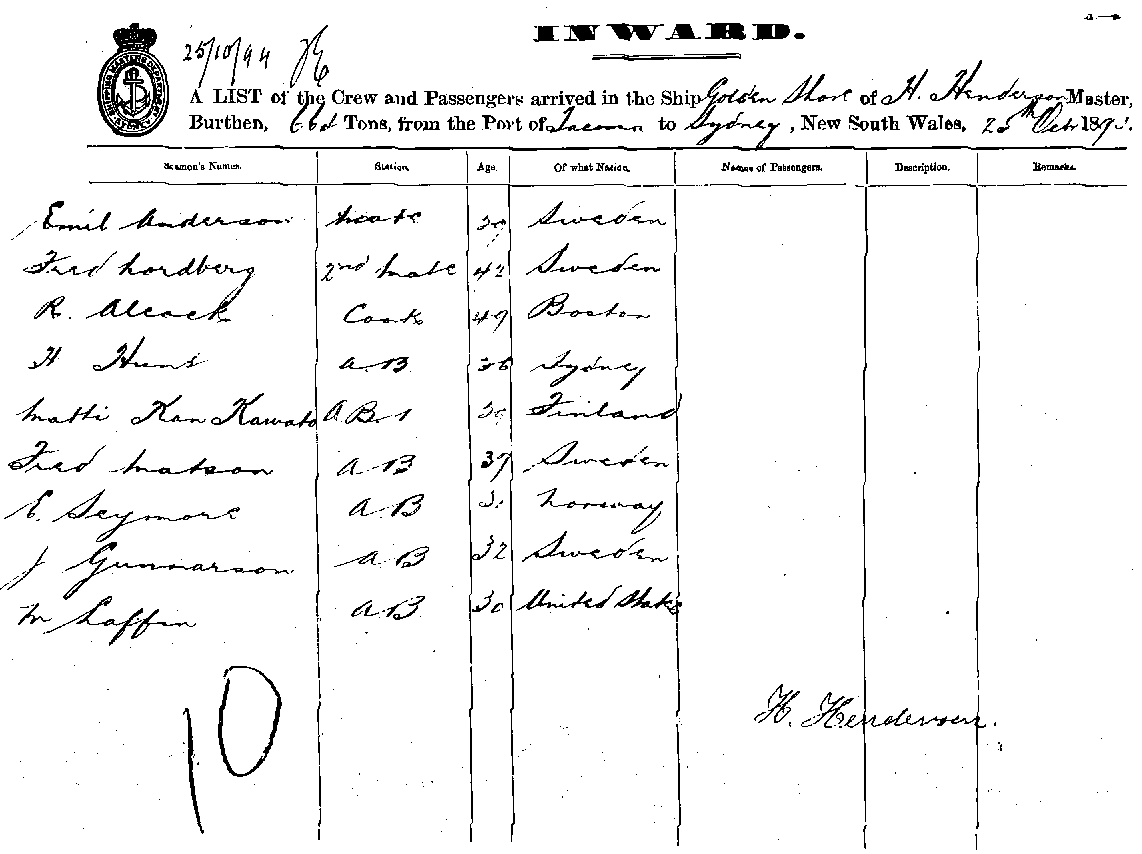 INWARD.
25/10/94
A LIST of the Crew and Passengers arrived in the Ship Golden Shore of H. Henderson Master,
Burthen, Tons, from the Port of Tacoma to Sydney, New South Wales, 25th Octr 189
Seamen's Names. Station. Age. Of what Nation. Names of Passengers. Description. Remarks.
Emil Anderson Mate Sweden
Fred Nordberg 2nd Mate 42 Sweden
R. Alcock Cook 49 Boston
H Hunt A B 36 Sydney
Matti Kan Kawato A B. Finland
Fred Matson A B 37 Sweden
E. Seymore A B Norway
J Gunnarson A B 32 Sweden
M Laffin A B 30 United States
10
H. Henderson.